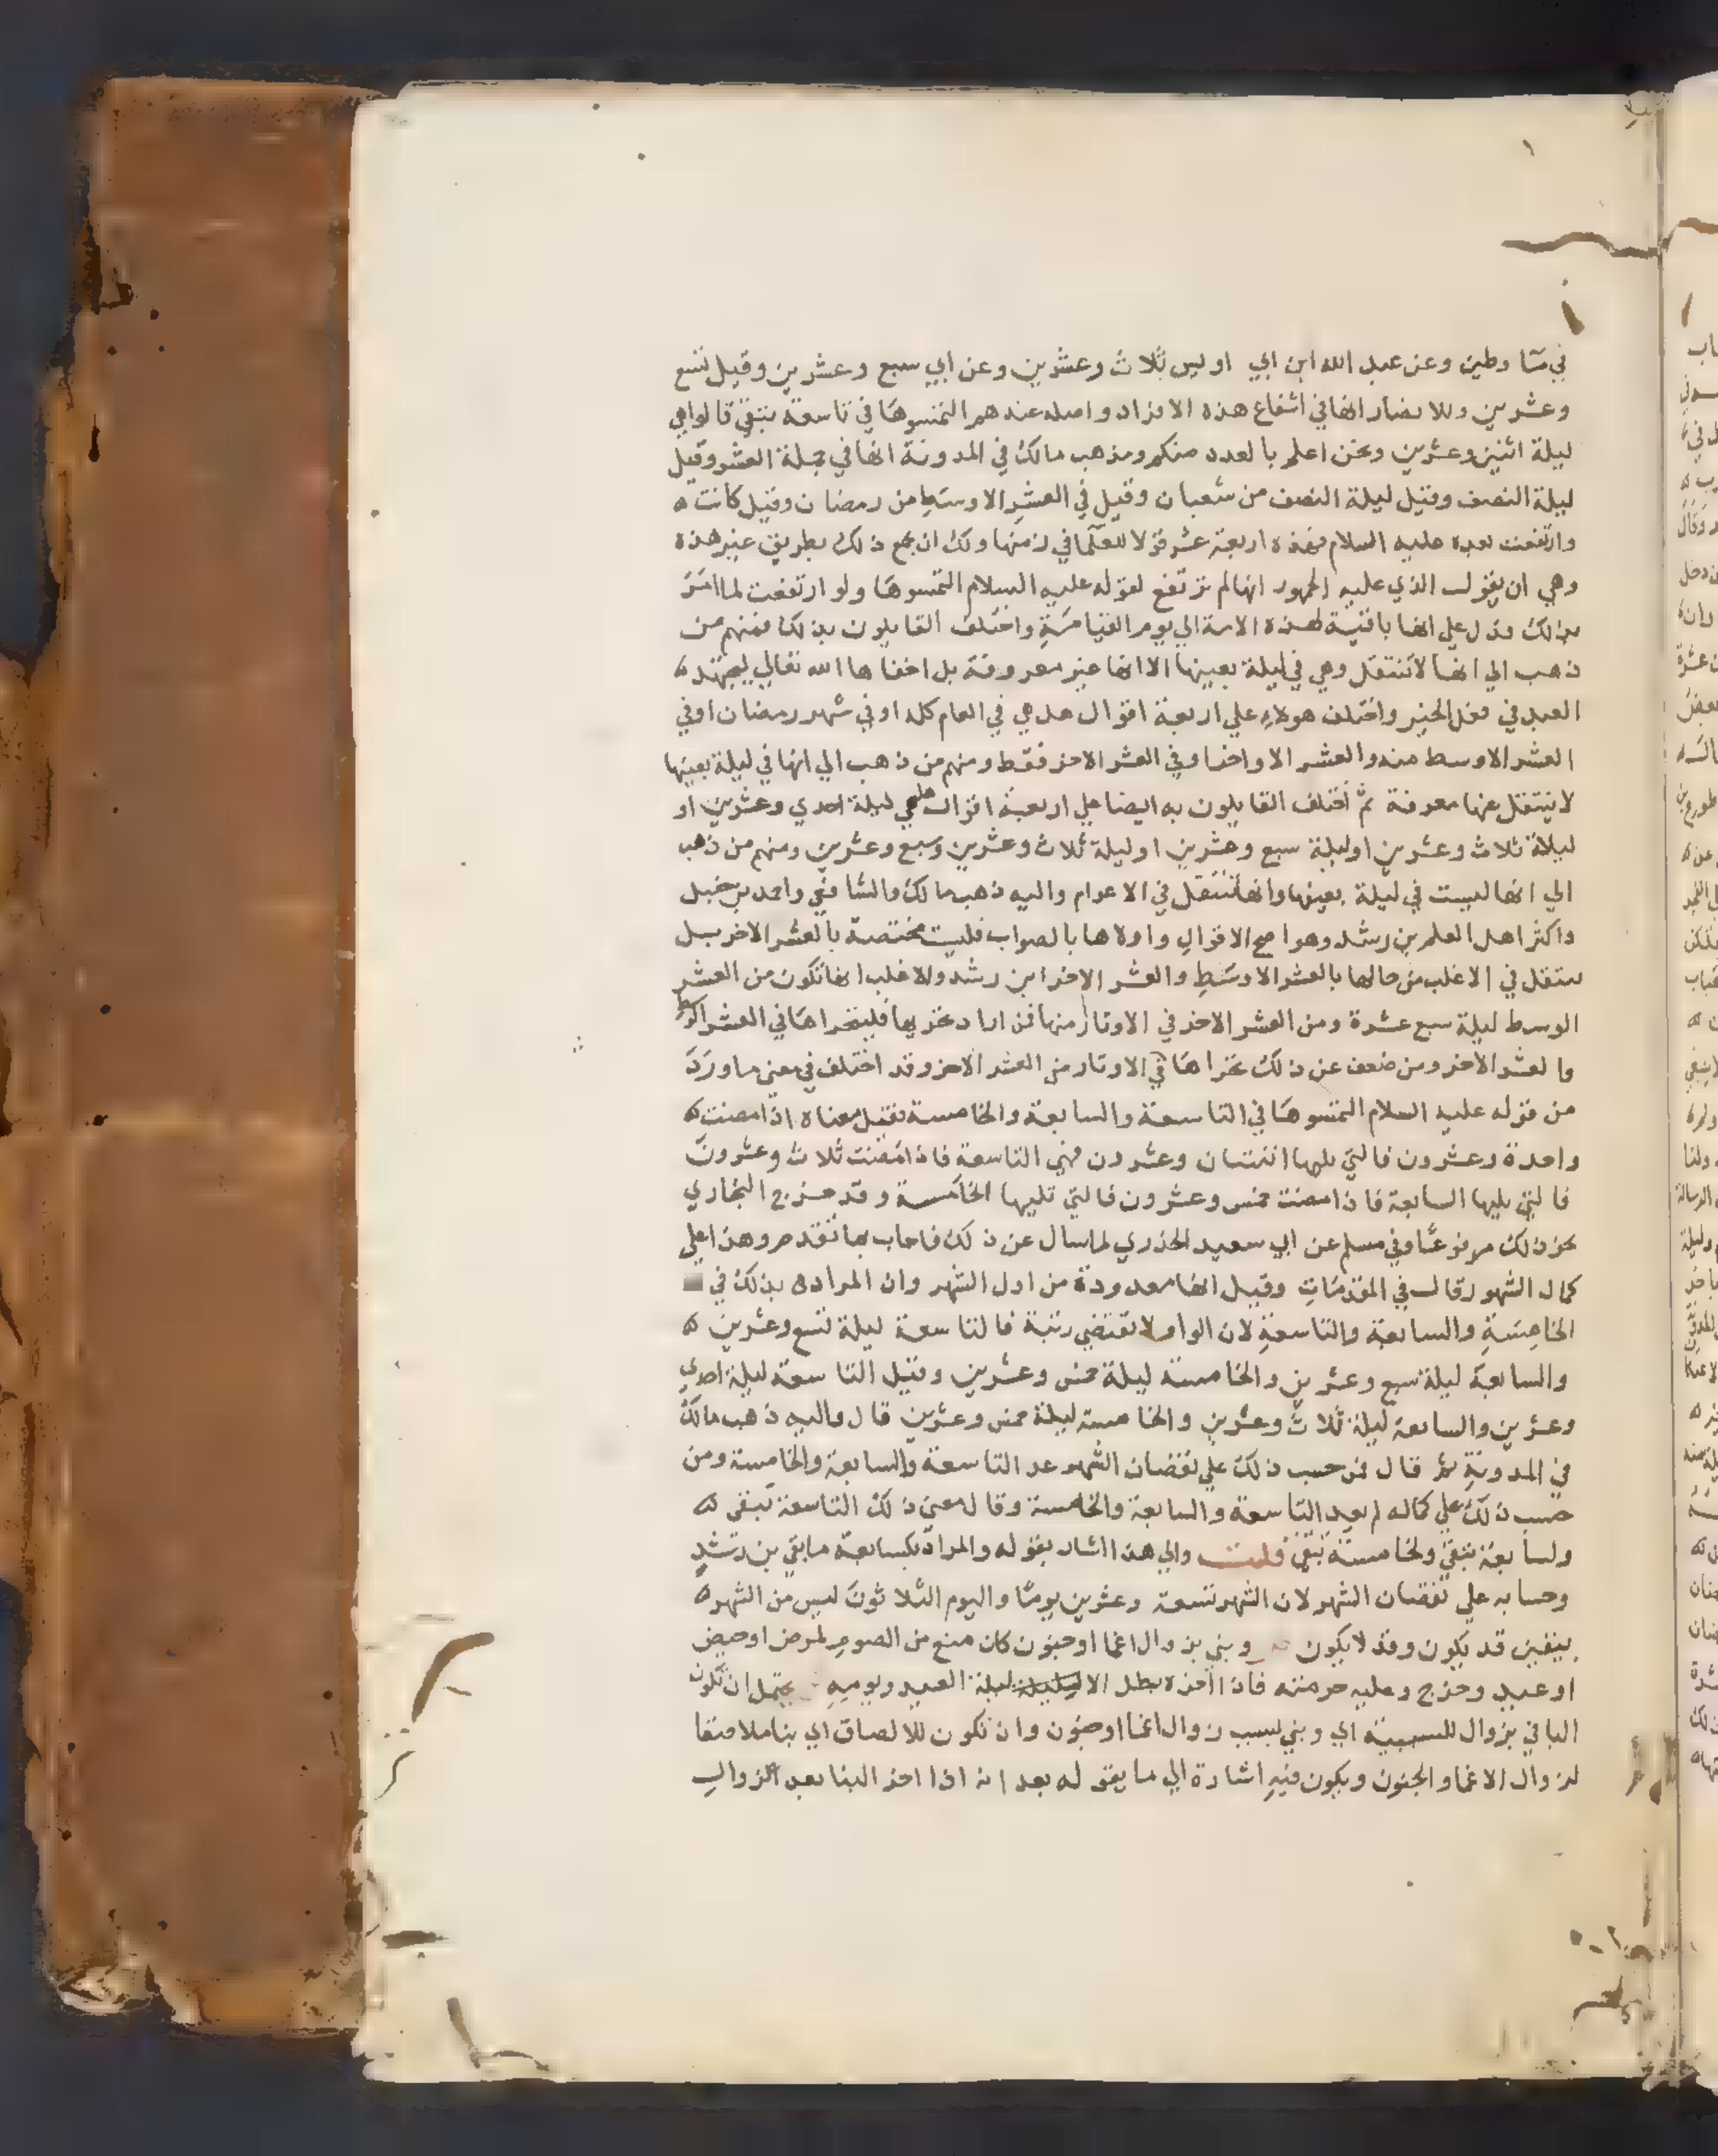 في ما وطين وعن عبد الله ابن ابي اويس ثلاث وعشرين وعن ابي سبع وعشرين وقيل تسع
وعشرين وللانصار انها في اشفاع هذه الافراد واصله عندهم التمسوها في تاسعة تبقي قالوا هي
ليلة اثنين وعشرين ونحن اعلم بالعدد منكم ومذهب مالك في المدونة انها في جملة العشر وقيل
ليلة النصف وقيل ليلة النصف من شعبان وقيل في العشر الاوسط من رمضان وقيل كانت
وارتفعت بعده عليه السلام فهذه اربعة عشر قولا للعلما في زمنها ولك ان تجمع ذلك بطريق غير هذه
وهي ان يقول الذي عليه الجمهور انها لم ترتفع لقوله عليه السلام التمسوها ولو ارتفعت لما امر
بذلك فدل علي انها باقية لهذه الامة الي يوم القيامة واختلف القايلون بذلك فمنهم من
ذهب الي انها لا تنتقل وهي في ليلة بعينها الا انها غير معروفة بل اخفاها الله تعالي ليجتهد
العبد في فعل الخير واختلف هولاء علي اربعة اقوال هل هي في العام كله او في شهر رمضان او في
العشر الاوسط منه والعشر الاواخر او في العشر الاخر فقط ومنهم من ذهب الي انها في ليلة بعينها
لا ينتقل عنها معروفة ثم اختلف القايلون به ايضا علي اربعة اقوال هل هي ليلة احدي وعشرين او
ليلة ثلاث وعشرين او ليلة سبع وعشرين او ليلة ثلاث وعشرين وسبع وعشرين ومنهم من ذهب
الي انها ليست في ليلة بعينها وانها تنتقل في الاعوام واليه ذهب مالك والشافعي واحمد بن حنبل
واكثر اهل العلم بن رشد وهو اصح الاقوال واولاها بالصواب فليست مختصة بالعشر الاخر بل
تنتقل في الاغلب من حالها بالعشر الاوسط والعشر الاخر ابن رشد والاغلب انها تكون من العشر
الوسط ليلة سبع عشرة ومن العشر الاخر في الاوتار منها فمن اراد تحريها فليتحراها في العشر الوسط
والعشر الاخر ومن ضعف عن ذلك تحراها في الاوتار من العشر الاخر وقد اختلف في معني ما ورد
من قوله عليه السلام التمسوها في التاسعة والسابعة والخامسة فقيل معناه اذا مضت
واحدة وعشرون فالتي يليها اثنتان وعشرون فهي التاسعة فاذا مضت ثلاث وعشرون
فالتي يليها السابعة فاذا مضت خمس وعشرون فالتي تليها الخامسة وقد خرج البخاري
نحو ذلك مرفوعا وفي مسلم عن ابي سعيد الخدري لما سال عن ذلك فاجاب بما تقدم وهذا علي
كمال الشهور وقال في المقدمات وقيل انها معدودة من اول الشهر وان المراد بذلك في
الخامسة والسابعة والتاسعة لان الواو لا تقتضي رتبة فالتاسعة ليلة تسع وعشرين
والسابعة ليلة سبع وعشرين والخامسة ليلة خمس وعشرين وقيل التاسعة ليلة احدي
وعشرين والسابعة ليلة ثلاث وعشرين والخامسة ليلة خمس وعشرين قال واليه ذهب مالك
في المدونة ثم قال فمن حسب ذلك علي نقصان الشهر عد التاسعة والسابعة والخامسة ومن
حسب ذلك علي كماله لم يعد التاسعة والسابعة والخامسة وقال معني ذلك التاسعة تبقي
ولسابعة تبقي ولخامسة تبقي قلت والي هذا اشار بقوله والمراد بكسابعة ما بقي بن رشد
وحسابه علي نقصان الشهر لان الشهر تسعة وعشرين يوما واليوم الثلاثون ليس من الشهر
بيقين قد يكون وقد لا يكون وبني بزوال اغما او جنون كان منع من الصوم لمرض او حيض
او عيد وخرج وعليه حرمته فان اخره بطل الا ليلة العيد ويومه يحتمل ان تكون
البا في بزوال للسببية اي وبني بسبب زوال اغما او جنون وان تكون للالصاق اي بنا ملاصقا
لزوال الاغما والجنون ويكون فيه اشارة الي ما يقوله بعد انه اذا اخر البنا بعد الزوال